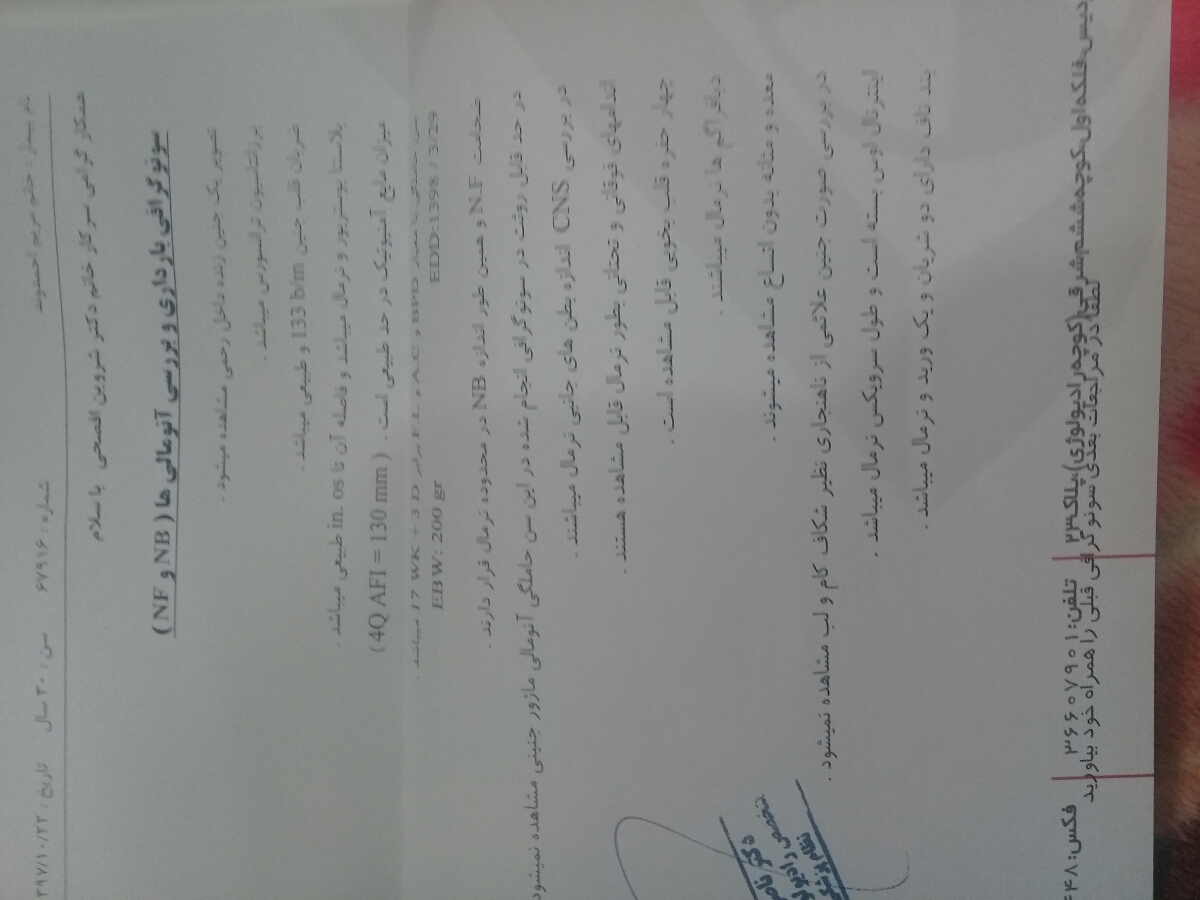 نام بیمار : خانم مریم احمدوند شماره : ۶۷۹۱۶ سن : ۳۰ سال تاریخ : ۳۹۷/۱۰/۲۲
همکار گرامی سرکار خانم دکتر شروین افصحی با سلام
سونوگرافی بارداری و بررسی آنومالی ها ( NB و NF )
تصویر یک جنین زنده داخل رحمی مشاهده میشود .
پرزانتاسیون ترانسورس میباشد .
ضربان قلب جنین 133 b/m و طبیعی میباشد .
پلاستا پوستریور و نرمال میباشد و فاصله آن تا in. os طبیعی میباشد .
میزان مایع آمنیوتیک در حد طبیعی است . ( 4Q AFI = 130 mm )
سن حاملگی با معیار BPD و AC و FL برابر 17 WK + 3 D میباشد .
EDD: 1398 / 3/29 EBW: 200 gr
ضخامت N.F و همین طور اندازه NB در محدوده نرمال قرار دارند .
در حد قابل رویت در سونوگرافی انجام شده در این سن حاملگی آنومالی ماژور جنینی مشاهده نمیشود
در بررسی CNS اندازه بطن های جانبی نرمال میباشند .
اندامهای فوقانی و تحتانی بطور نرمال قابل مشاهده هستند .
چهار حفره قلب بخوبی قابل مشاهده است .
دیافراگم ها نرمال میباشند .
معده و مثانه بدون اتساع مشاهده میشوند .
در بررسی صورت جنین علائمی از ناهنجاری نظیر شکاف کام و لب مشاهده نمیشود .
اینترنال اوس بسته است و طول سرویکس نرمال میباشد .
بند ناف دارای دو شریان و یک ورید و نرمال میباشد .
دکتر
متخصص رادیولو
نظام پزشکی
لطفا در مراجعات بعدی سونوگرافی قبلی را همراه خود بیاورید
ردیس، فلکه اول، کوچه ششم شرقی (کوچه رادیولوژی)، پلاک ۲۳ تلفن: ۳۶۶۰۷۹۰۱ فکس: ۶۴۸